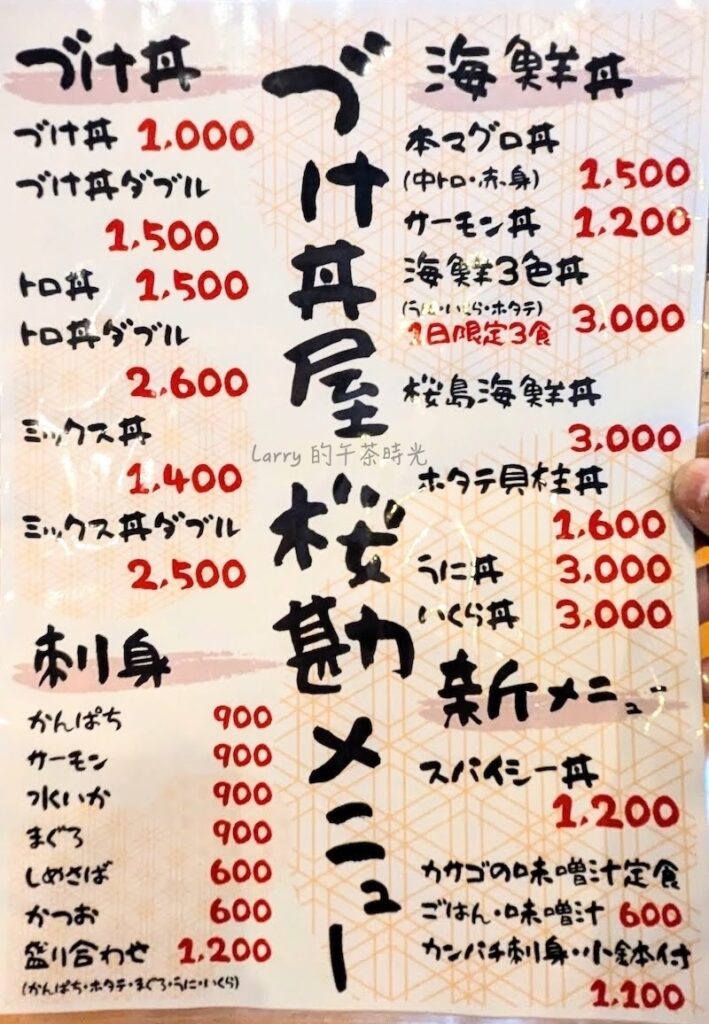 づけ丼
づけ丼 1,000
づけ丼ダブル
1,500
トロ丼 1,500
トロ丼ダブル
2,600
ミックス丼
1,400
ミックス丼ダブル
2,500
刺身
かんぱち 900
サーモン 900
水いか 900
まぐろ 900
しめさば 600
かつお 600
盛り合わせ 1,200
(かんぱち・ホタテ・まぐろ・うに・いくら)
づけ丼屋 桜勘メニュー
Larry 的午茶時光
海鮮丼
本マグロ丼
(中トロ・赤身) 1,500
サーモン丼 1,200
海鮮3色丼
(うに・いくら・ホタテ)
1日限定3食 3,000
桜島海鮮丼
3,000
ホタテ貝柱丼
1,600
うに丼 3,000
いくら丼 3,000
新メニュー
スパイシー丼
1,200
カサゴの味噌汁定食
ごはん・味噌汁 600
カンパチ刺身・小鉢付
1,100